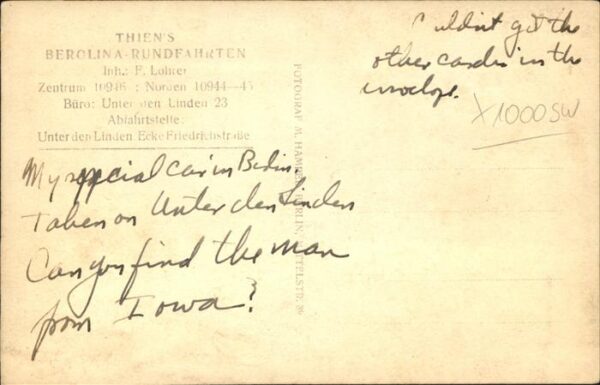 THIEN'S
BEROLINA-RUNDFAHRTEN
Inh.: F. Lohrer
Zentrum 10946 ; Norden 10944—45
Büro: Unter den Linden 23
Abfahrtstelle:
Unter den Linden Ecke Friedrichstraße
Couldn't get the
other cards in the
envelope.
X1000SW
My special car in Berlin.
Taken on Unter den Linden
Can you find the man
from Iowa?
FOTOGRAF M. BERLIN,